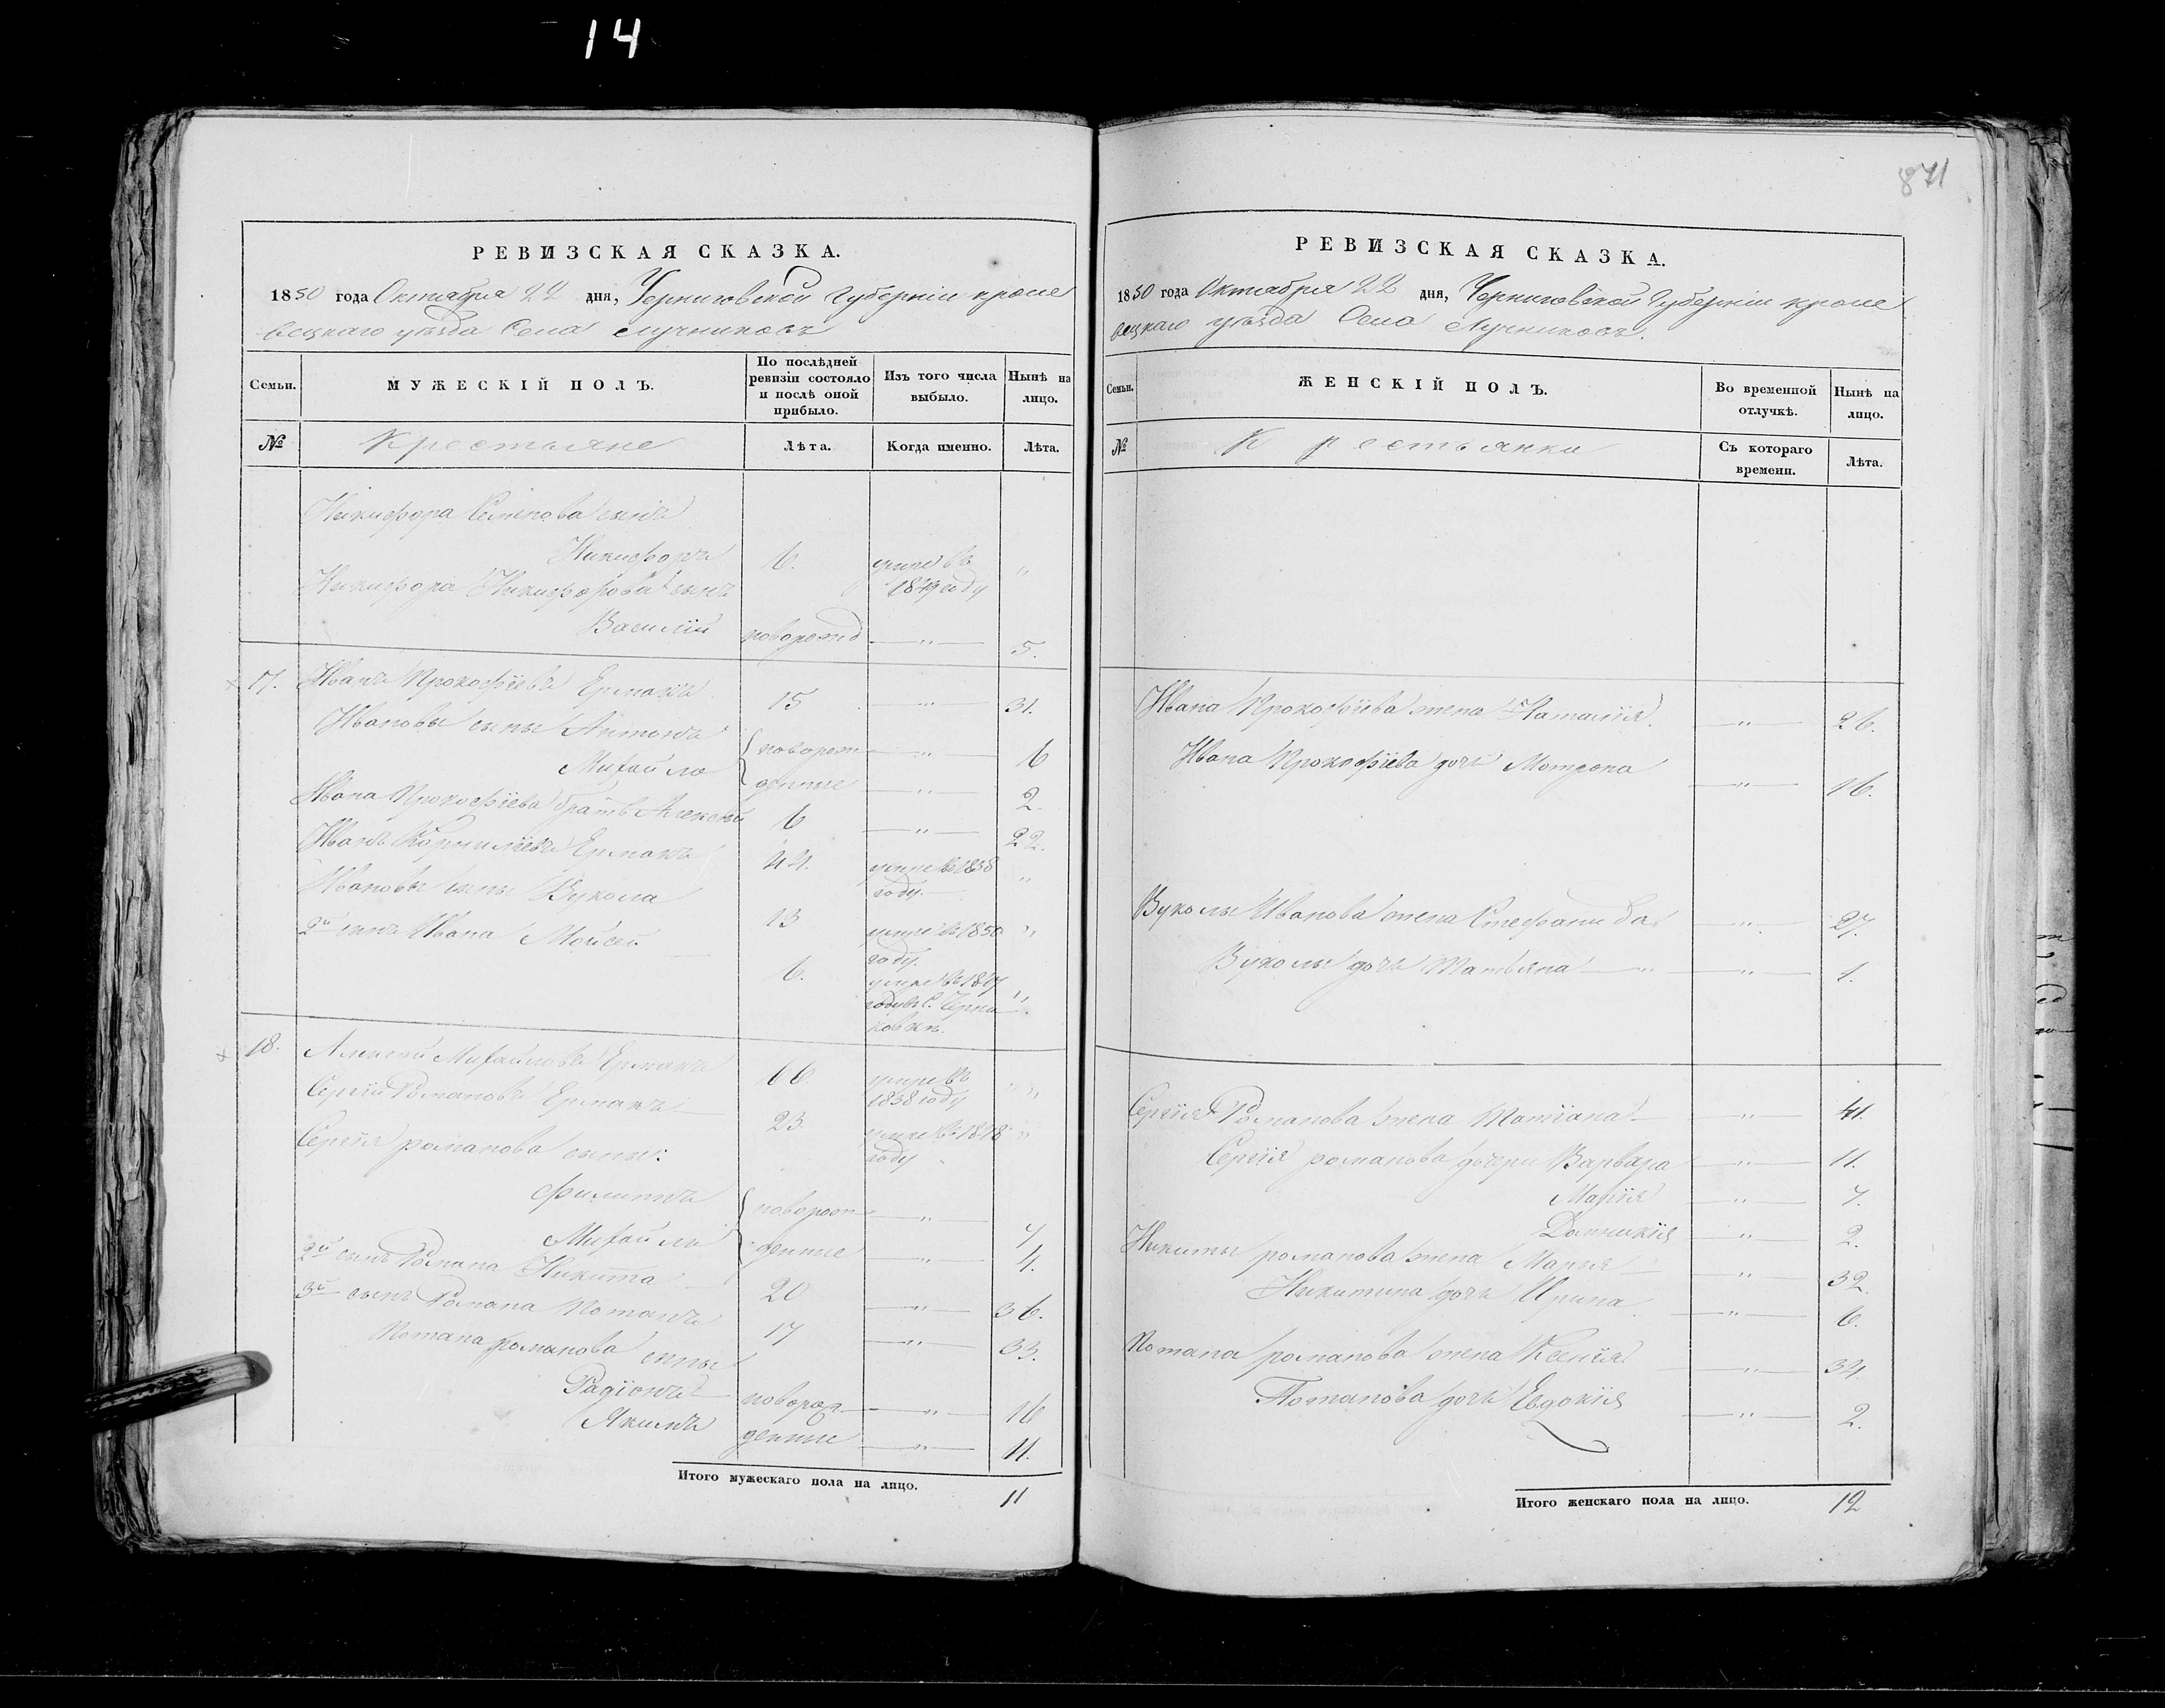 14
871
РЕВИЗСКАЯ СКАЗКА.
1850 года Октября 22 дня, Черниговской Губерніи кроле
вецкаго уѣзда Села Лучниковъ
Семьи.
МУЖЕСКІЙ ПОЛЪ.
По послѣдней ревизіи состояло и послѣ оной прибыло.
Изъ того числа выбыло.
Нынѣ на лицо.
№
Крестьяне
Лѣта.
Когда именно.
Лѣта.
Никифора Семенова сынъ
Никифоръ 6. умре въ 1849 году "
Никифора Никифорова сынъ
Василій новорожд — " — 5.
17. Иванъ Прокофіевъ Ермакъ 15 — " — 31.
Ивановы сыны Антонъ новорож — " — 6
Михайло денные — " — 2.
Ивана Прокофіева братъ Алексѣй 6 — " — 22.
Иванъ Корнилѣевъ Ермакъ 44. умре въ 1838 году. "
Ивановы сыны Вукола 13 умре въ 1850 году. "
2й сынъ Ивана Мойсей 6. умре въ году въ С. "
18. Алексѣй Михайловъ Ермакъ 66. умре въ 1838 году "
Сергій Романовъ Ермакъ 23 умре въ 1848 году "
Сергія романова сыны:
Филиппъ новорож — " — 7
Михайло денные — " — 4.
2й сынъ Романа Никита 20 — " — 36.
3й сынъ Романа Потапъ 17 — " — 33.
Потапа романова сыны
Радіонъ новорож — " — 16
Якимъ денные — " — 11.
Итого мужескаго пола на лицо. 11
РЕВИЗСКАЯ СКАЗКА.
1850 года Октября 22 дня, Черниговской Губерніи кроле
вецкаго уѣзда Села Лучниковъ.
Семьи.
ЖЕНСКІЙ ПОЛЪ.
Во временной отлучкѣ.
Нынѣ на лицо.
№
Крестьянки
Съ котораго времени.
Лѣта.
Ивана Прокофіева жена Наталія. — " — 26.
Ивана Прокофіева дочь Мотрона — " — 16.
Вуколы Иванова жена Стефанида — " — 27.
Вуколы дочь Татьяна — " — 1.
Сергія Романова жена Татіана — " — 41.
Сергія романова дочери Варвара — " — 11.
Марія — " — 7.
Домникія — " — 2.
Никиты романова жена Марья — " — 32.
Никитина дочь Ирина — " — 6.
Потапа романова жена Ксенія — " — 34.
Потапова дочь Евдокія — " — 2.
Итого женскаго пола на лицо. 12